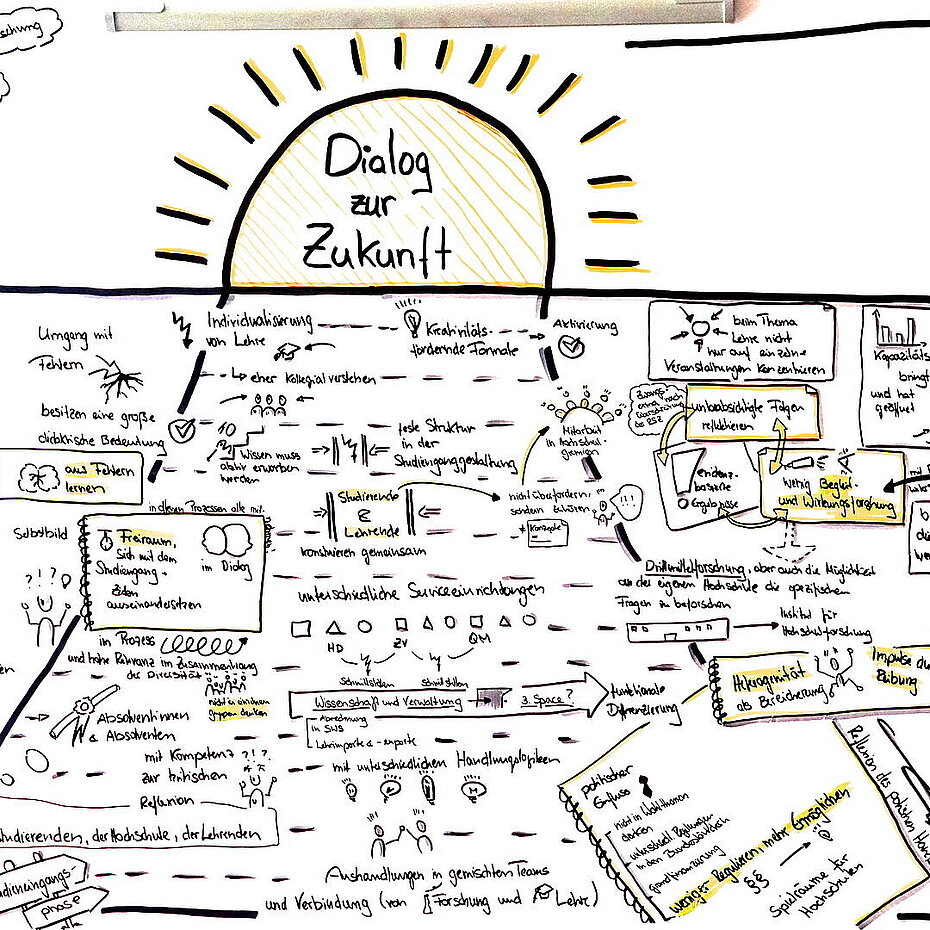 Dialog
zur
Zukunft
Umgang mit
Fehlern
besitzen eine große
didaktische Bedeutung
aus Fehlern
lernen
Individualisierung
von Lehre
Kreativitäts-
fördernde Formate
Aktivierung
eher kollegial verstehen
Wissen muss
aktiv erworben
werden
feste Struktur
in der
Studienganggestaltung
Mitarbeit
in Hochschul-
gremien
Studierende
&
Lehrende
konstruieren gemeinsam
nicht überfordern,
sondern
Konzepte
beim Thema
Lehre nicht
nur auf einzelne
Veranstaltungen konzentrieren
Kapazitäts
bringt
und hat
geöffnet
unbeabsichtigte Folgen
reflektieren
evidenz-
basierte
Ergebnisse
wenig Begleit-
und Wirkungsforschung
Selbstbild
in diesen Prozessen alle mit-
Freiraum,
sich mit dem
Studiengang
auseinandersetzen
im Dialog
im Prozess
und hohe Relevanz im Zusammenhang
der Diversität
nicht in einzelnen
Gruppen denken
unterschiedliche Serviceeinrichtungen
HD
ZV
QM
Schnittstellen
Schnittstellen
Drittmittelforschung, aber auch die Möglichkeit
an der eigenen Hochschule die spezifischen
Fragen zu beforschen
Institut für
Hochschulforschung
Wissenschaft und Verwaltung
3. Space?
funktionale
Differenzierung
Abrechnung
in SWS
Lehrimporte & -exporte
Heterogenität
als Bereicherung
Impulse
Reibung
Absolventinnen
& Absolventen
mit Kompetenz
zur kritischen
Reflexion
Studierenden, der Hochschule, der Lehrenden
mit unterschiedlichen Handlungslogiken
Aushandlungen in gemischten Teams
und Verbindung (von Forschung und Lehre)
politischer
Einfluss
nicht in Wahlthemen
denken
in den Bundesländern
Grundfinanzierung
weniger Regulieren, mehr Ermöglichen
§§
Spielräume für
Hochschulen
Reflexion des politischen
Studieneingangs-
phase